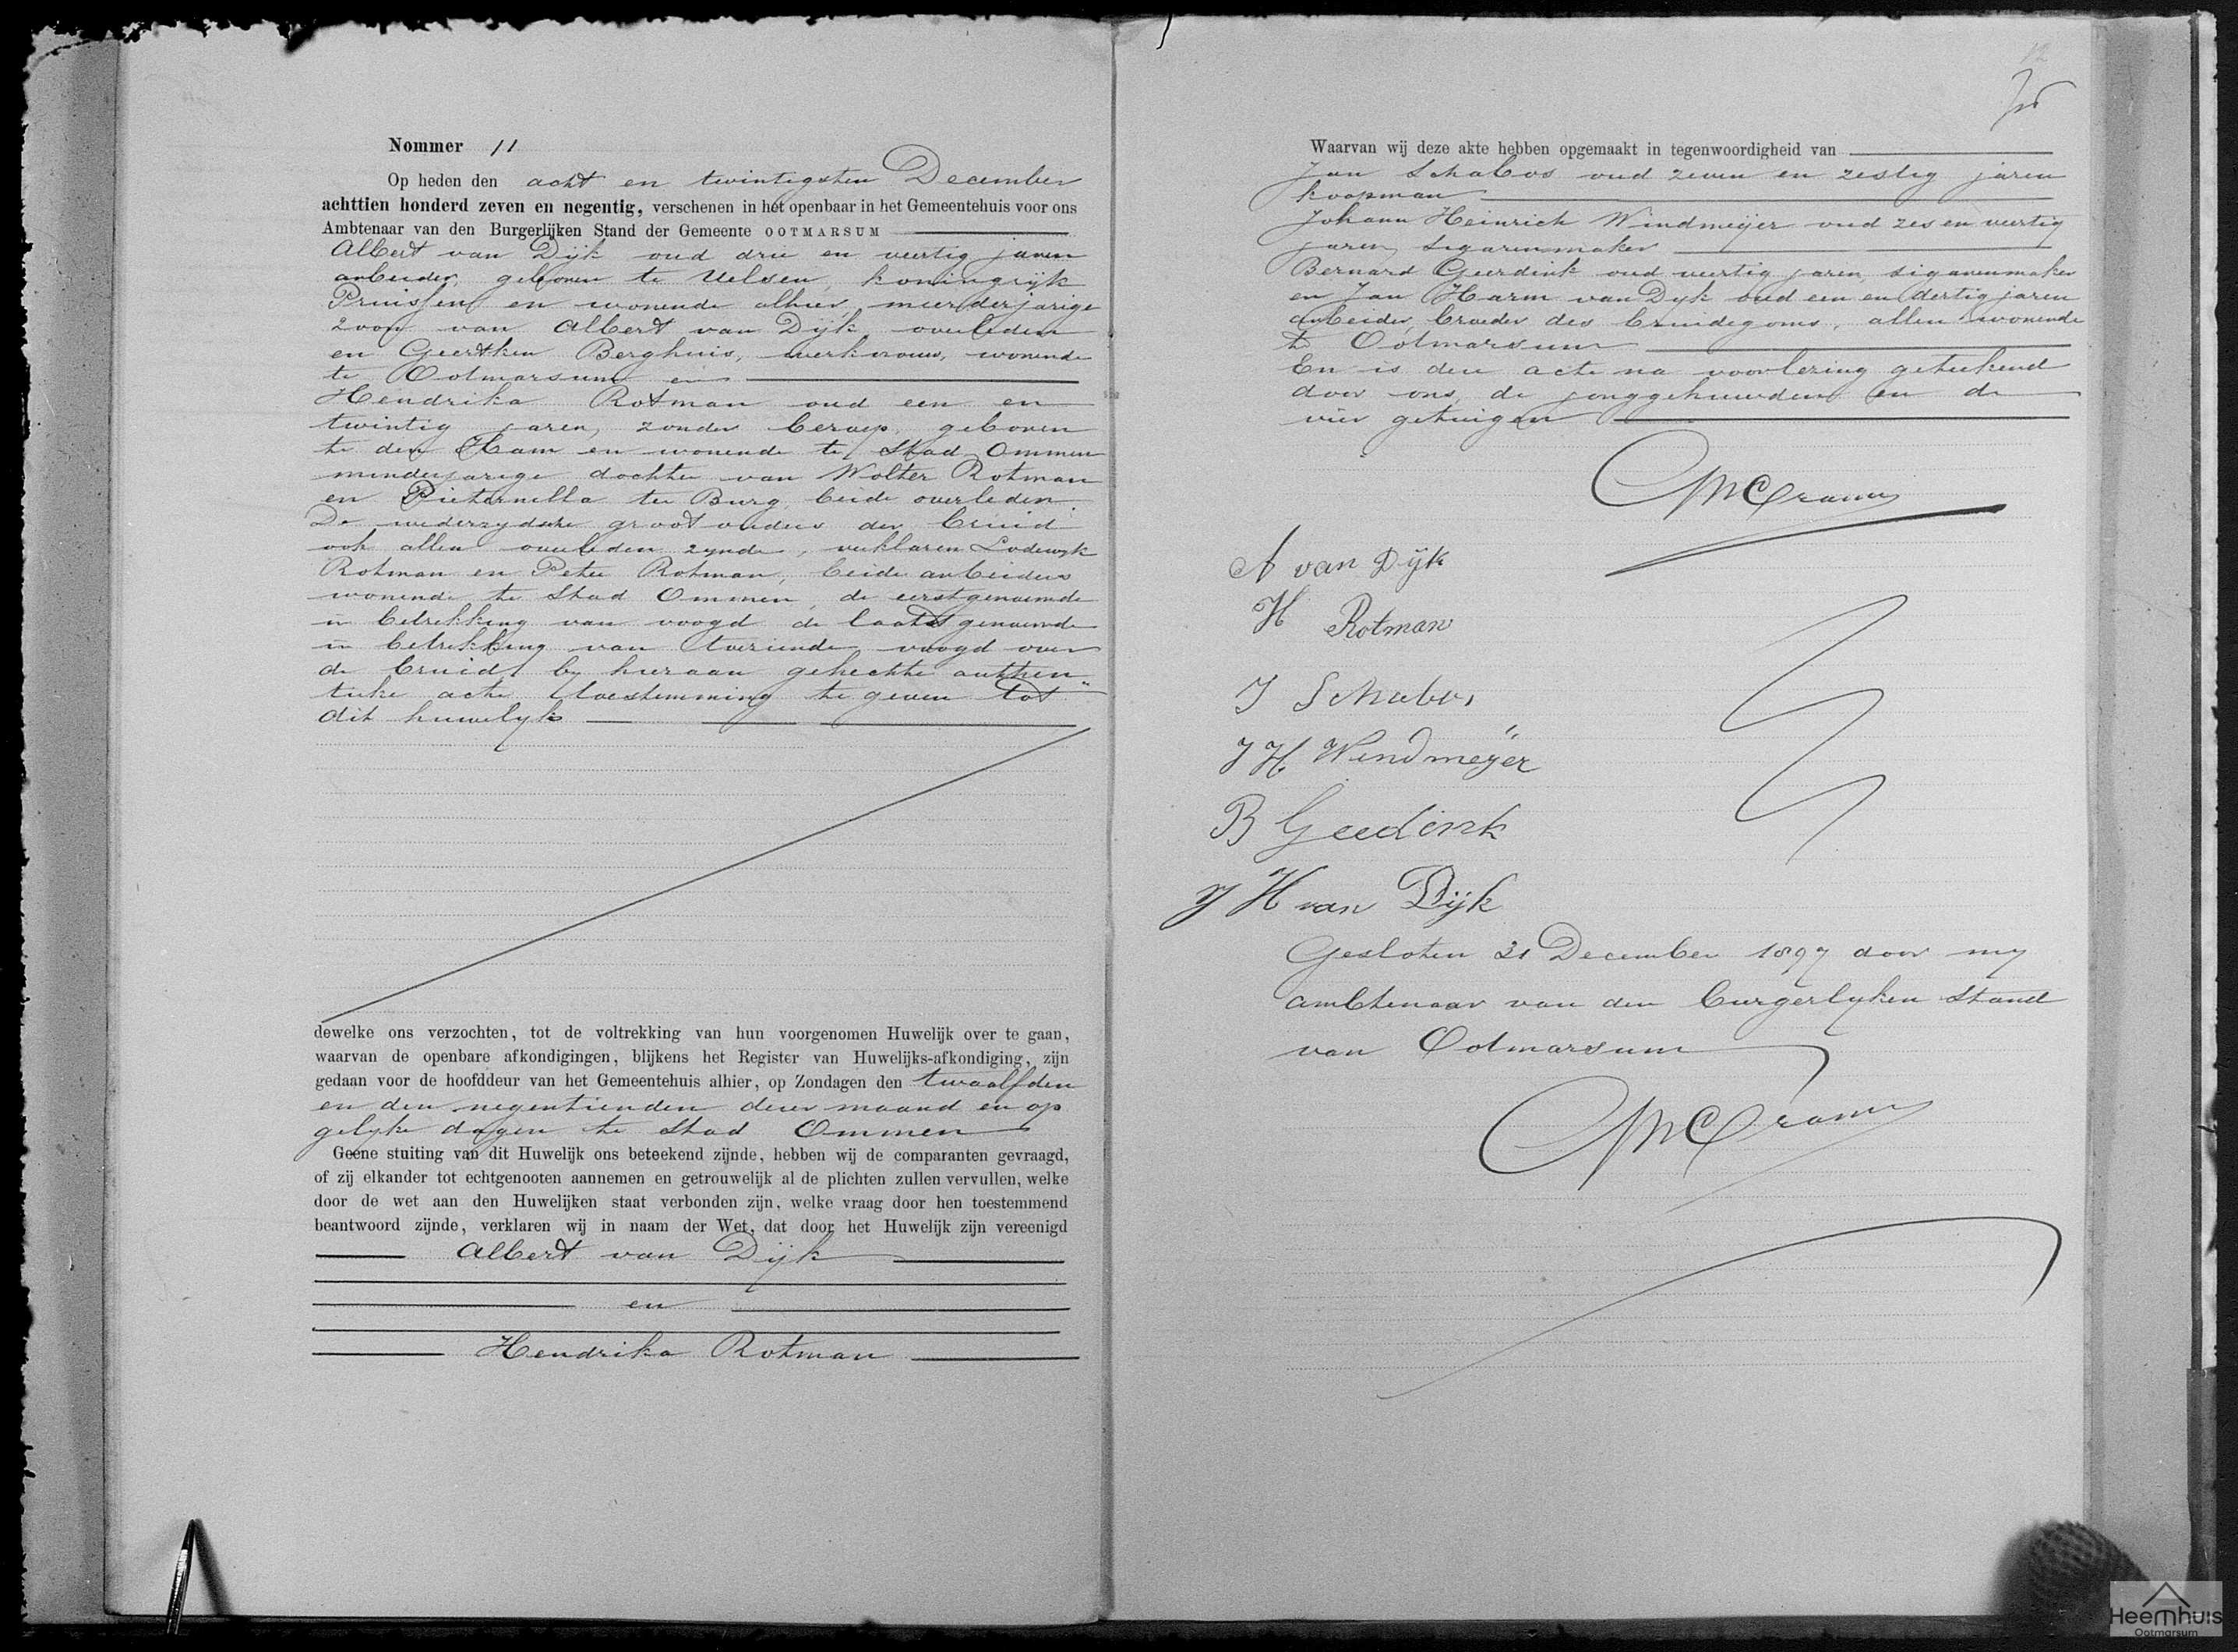 Nommer 11
Op heden den acht en twintigsten December
achttien honderd zeven en negentig, verschenen in het openbaar in het Gemeentehuis voor ons
Ambtenaar van den Burgerlijken Stand der Gemeente OOTMARSUM
Albert van Dijk oud drie en veertig jaren
arbeider, geboren te Uelsen, koningrijk
Pruissen en wonende alhier, meerderjarige
zoon van Albert van Dijk, overleden
en Geertken Berghuis, werkvrouw, wonende
te Ootmarsum en
Hendrika Rotman oud een en
twintig jaren, zonder beroep, geboren
te den Ham en wonende te Stad Ommen
minderjarige dochter van Wolter Rotman
en Pieternella ter Burg, beide overleden.
De wederzydsche grootouders der bruid
ook allen overleden zynde, verklaren Lodewyk
Rotman en Peter Rotman, beide arbeiders
wonende te Stad Ommen, de eerstgenoemde
in betrekking van voogd de laatstgenoemde
in betrekking van toeziende voogd over
de bruid by hieraan gehechte authen
tieke acte toestemming te geven tot
dit huwelyk
dewelke ons verzochten, tot de voltrekking van hun voorgenomen Huwelijk over te gaan,
waarvan de openbare afkondigingen, blijkens het Register van Huwelijks-afkondiging, zijn
gedaan voor de hoofddeur van het Gemeentehuis alhier, op Zondagen den twaalfden
en den negentienden dezer maand en op
gelyke dagen te Stad Ommen
Geene stuiting van dit Huwelijk ons beteekend zijnde, hebben wij de comparanten gevraagd,
of zij elkander tot echtgenooten aannemen en getrouwelijk al de plichten zullen vervullen, welke
door de wet aan den Huwelijken staat verbonden zijn, welke vraag door hen toestemmend
beantwoord zijnde, verklaren wij in naam der Wet, dat door het Huwelijk zijn vereenigd
Albert van Dijk
en
Hendrika Rotman
12
Waarvan wij deze akte hebben opgemaakt in tegenwoordigheid van
Jan Schabos oud zeven en zestig jaren
koopman
Johann Heinrich Windmeijer oud zes en veertig
jaren, sigarenmaker
Bernard Geerdink oud veertig jaren, sigarenmaker
en Jan Harm van Dyk oud een en dertig jaren
arbeider, broeder des bruidegoms, allen wonende
te Ootmarsum
En is deze acte na voorlezing geteekend
door ons, de jonggehuwden en de
vier getuigen
A van Dijk
H Rotman
J Schabos
J H Windmeijer
B Geerdink
J H van Dijk
Gesloten 31 December 1897 door my
ambtenaar van den burgerlyken stand
van Ootmarsum
Heemhuis
Ootmarsum